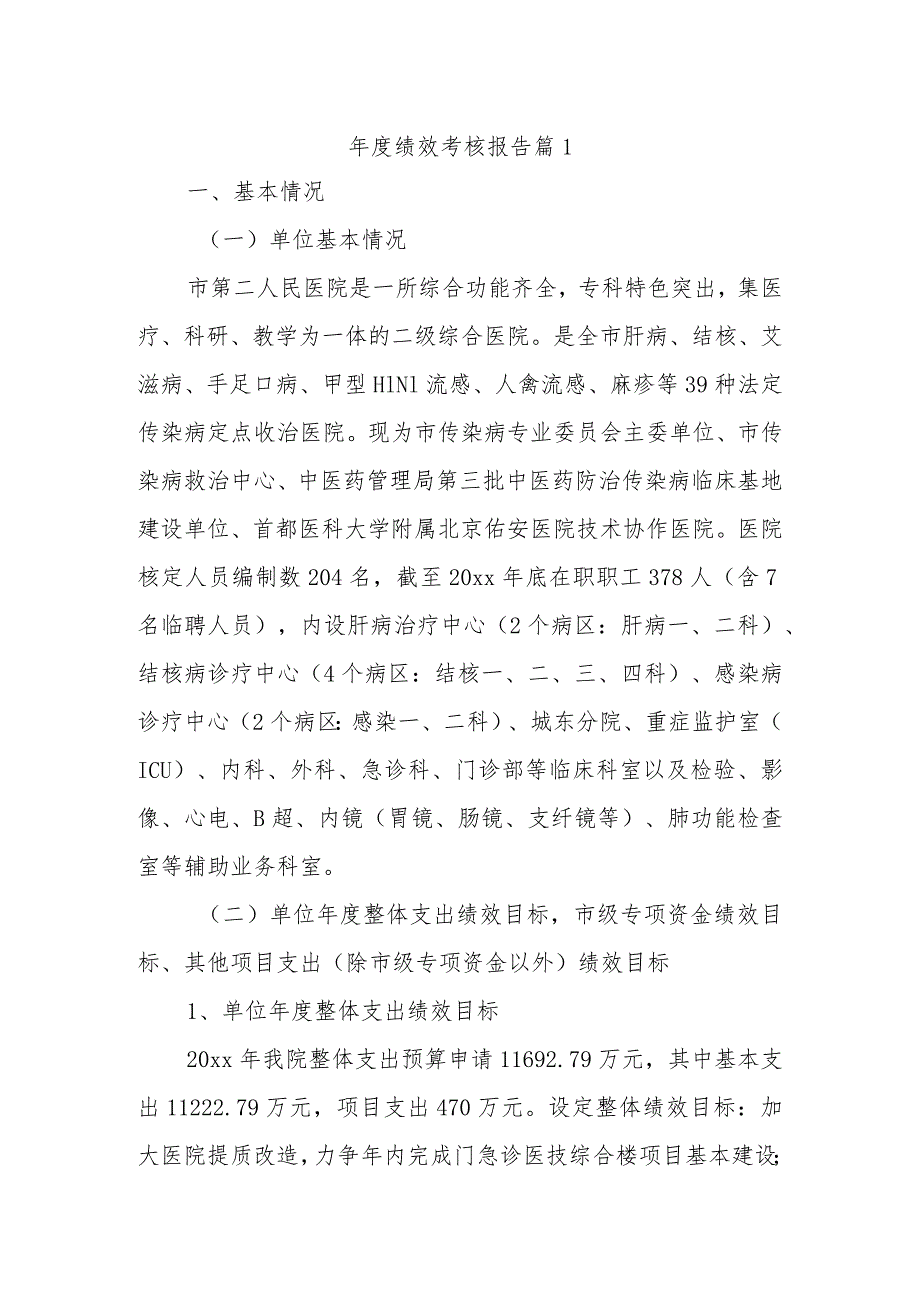 年度绩效考核报告篇1
一、基本情况
（一）单位基本情况
市第二人民医院是一所综合功能齐全，专科特色突出，集医
疗、科研、教学为一体的二级综合医院。是全市肝病、结核、艾
滋病、手足口病、甲型HlNl流感、人禽流感、麻疹等39种法定
传染病定点收治医院。现为市传染病专业委员会主委单位、市传
染病救治中心、中医药管理局第三批中医药防治传染病临床基地
建设单位、首都医科大学附属北京佑安医院技术协作医院。医院
核定人员编制数204名，截至20xx年底在职职工378人（含7
名临聘人员），内设肝病治疗中心（2个病区：肝病一、二科）、
结核病诊疗中心（4个病区：结核一、二、三、四科）、感染病
诊疗中心（2个病区：感染一、二科）、城东分院、重症监护室（
ICU）、内科、外科、急诊科、门诊部等临床科室以及检验、影
像、心电、B超、内镜（胃镜、肠镜、支纤镜等）、肺功能检查
室等辅助业务科室。
（二）单位年度整体支出绩效目标，市级专项资金绩效目
标、其他项目支出（除市级专项资金以外）绩效目标
1、单位年度整体支出绩效目标
20xx年我院整体支出预算申请11692.79万元，其中基本支
出11222.79万元，项目支出470万元。设定整体绩效目标：加
大医院提质改造，力争年内完成门急诊医技综合楼项目基本建设；